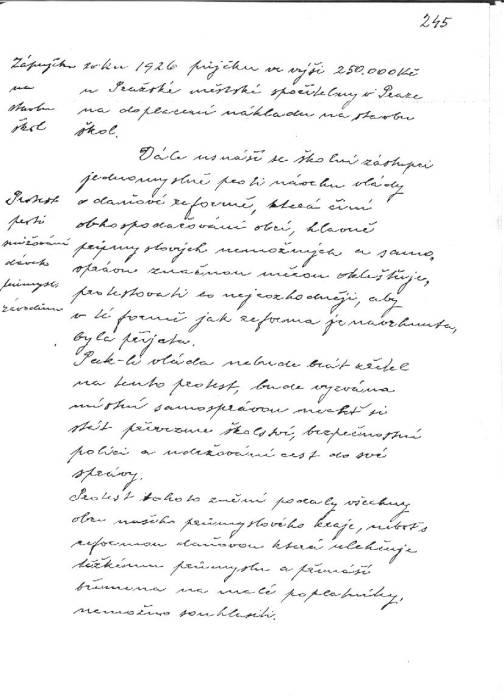 245
Zápujčka
na
stavbu
škol
roku 1926 půjčku ve výši 250.000 Kč
u Pražské městské spořitelny v Praze
na doplacení nákladu na stavbu
škol.
Dále usnáší se školní zástupci
jednomyslně proti návrhu vlády
o daňové reformě, která činí
obhospodařování obcí, hlavně
průmyslových nemožných a samo,
správu značnou měrou okleštuje,
protestovati co nejrozhodněji, aby
v té formě jak reforma je navrhnuta,
byla přijata.
Protest
proti
snižování
dávek
průmysl.
závodům
Pak-li vláda nebude brát zřetel
na tento protest, bude vyzvána
místní samosprávou nechť si
stát převezme školství, bezpečnostní
polici a udržování cest do své
správy.
Protest tohoto znění podaly všechny
obce našeho průmyslového kraje, neboť s
reformou daňovou která ulehčuje
těžkému průmyslu a přenáší
břemena na malé poplatníky,
nemožno souhlasiti.